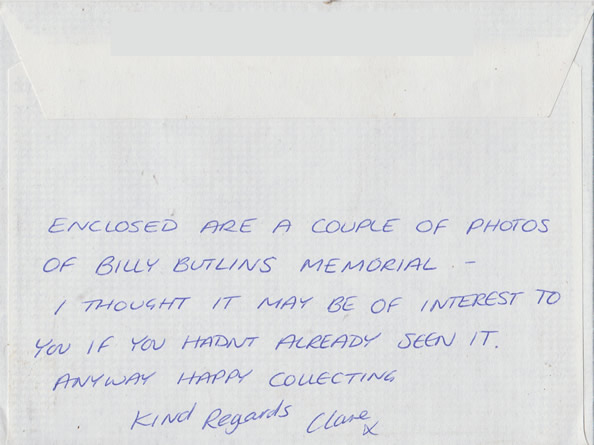 ENCLOSED ARE A COUPLE OF PHOTOS
OF BILLY BUTLINS MEMORIAL -
I THOUGHT IT MAY BE OF INTEREST TO
YOU IF YOU HADNT ALREADY SEEN IT.
ANYWAY HAPPY COLLECTING
KIND Regards Clare x